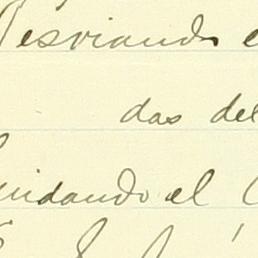 Desviando e
das del
uidando el C